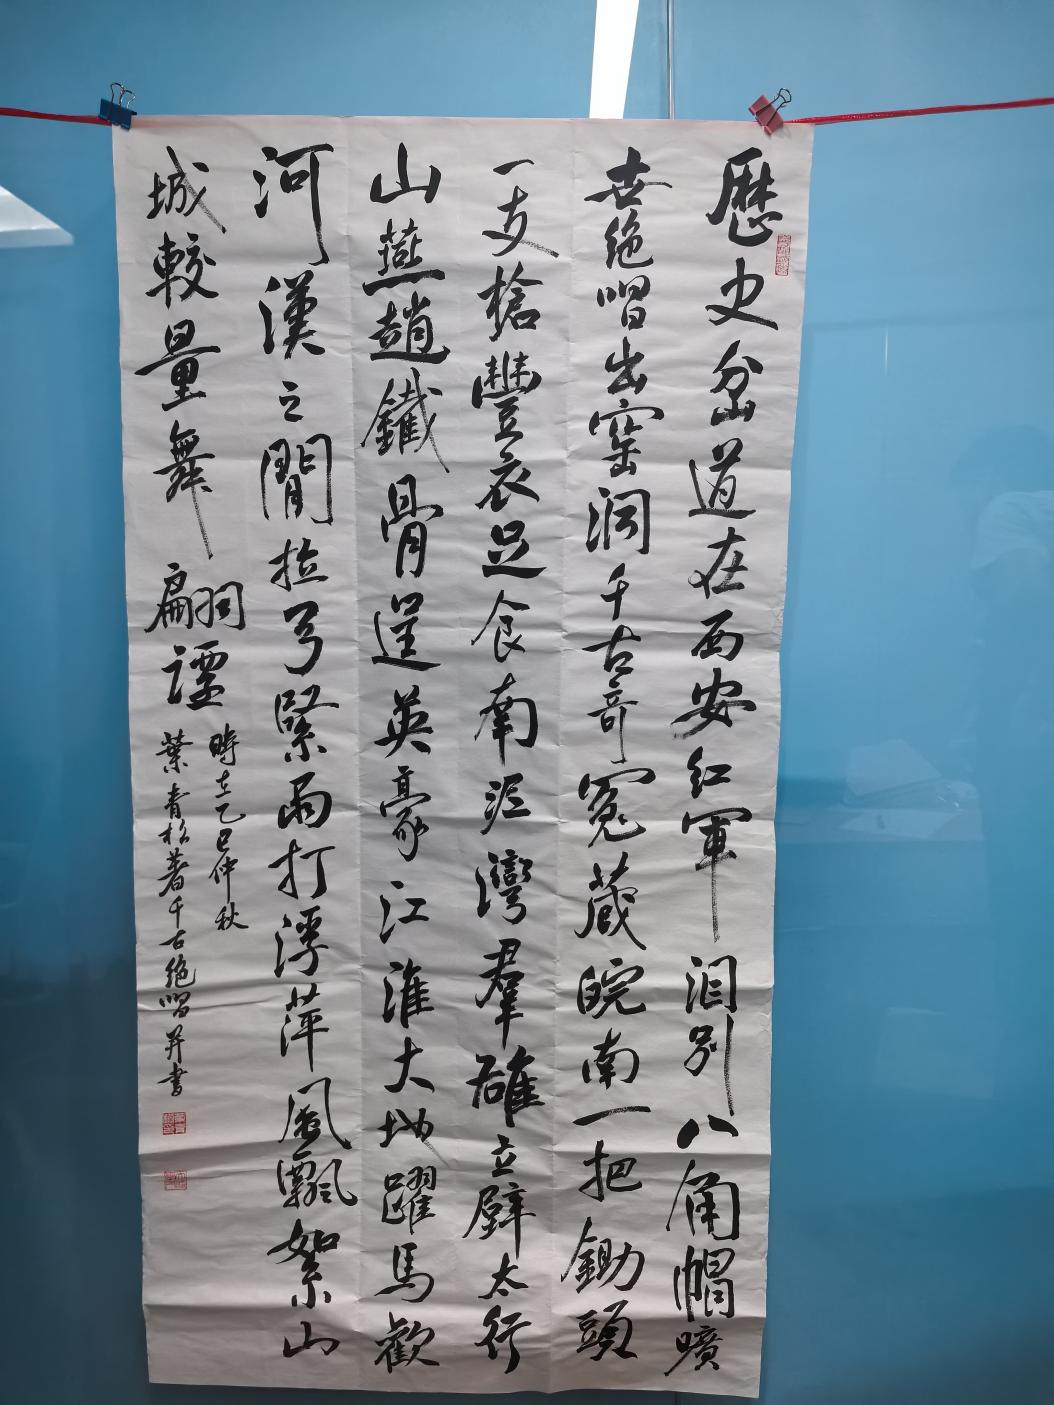 歷史岔道在西安紅軍淚別八角帽曠
世絕唱出窑洞千古奇冤藏皖南一把鋤頭
一支槍豐衣足食南泥灣群雄立壁太行
山燕趙鐵骨逞英豪江淮大地躍馬歡
河漢之間拉弓緊雨打浮萍風飄絮山
城較量舞翩
時在乙巳仲秋
葉青松著千古絕唱并書